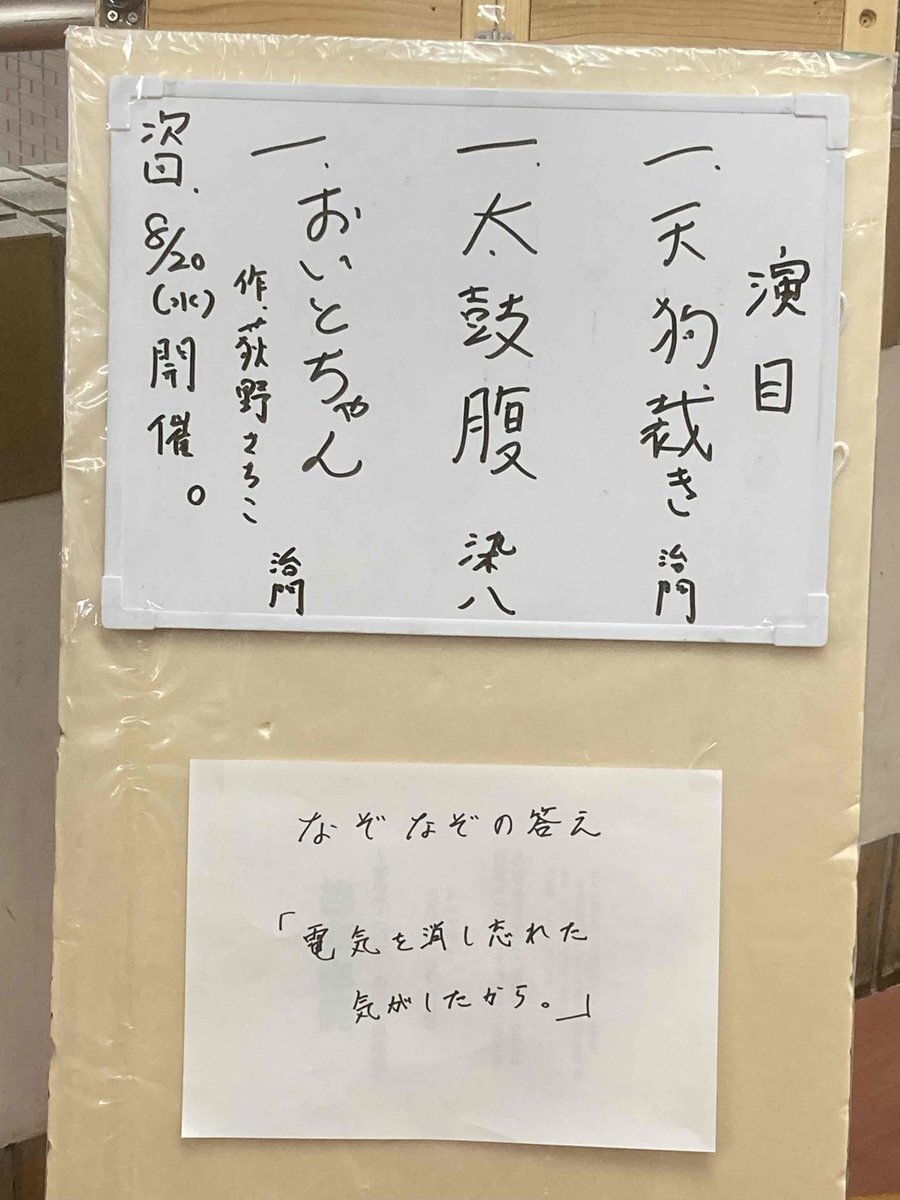 演目
一.天狗裁き 治門
一.太鼓腹 染八
一.おいとちゃん
作.荻野さちこ 治門
次回.8/20(水)開催。
なぞなぞの答え
「電気を消し忘れた
気がしたから。」